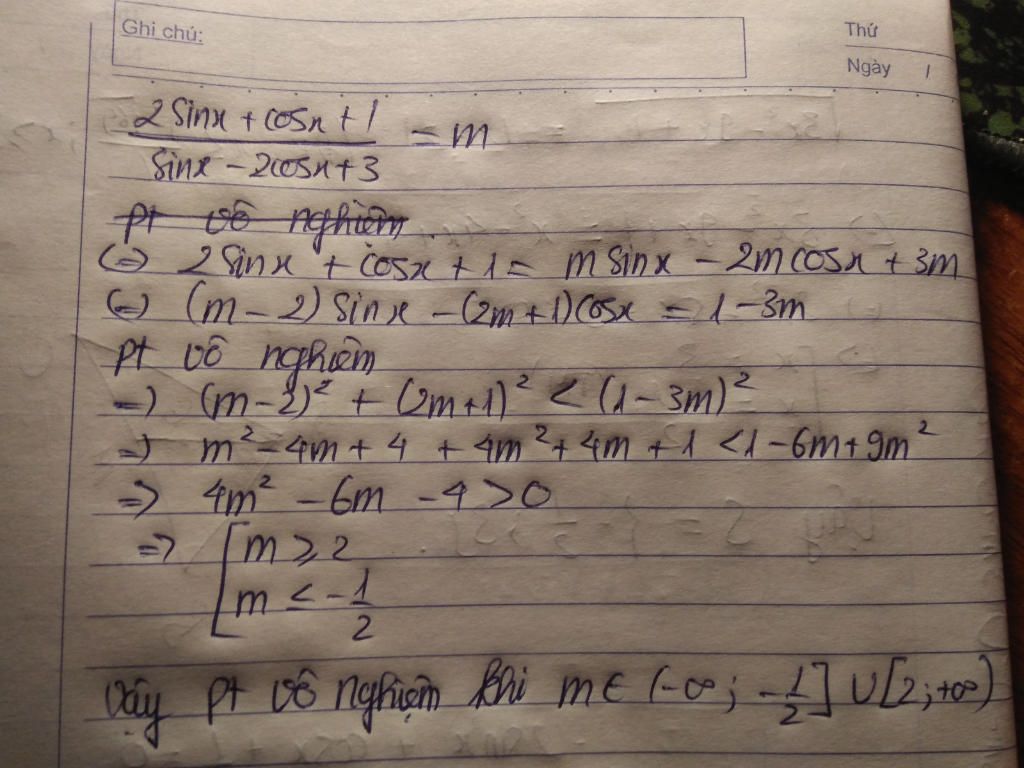 Ghi chú:
Thứ
Ngày /
2 sinx + cosx + 1 / sinx - 2cosx + 3 = m
pt vô nghiệm.
(=) 2 sinx + cosx + 1 = m sinx - 2m cosx + 3m
(=) (m - 2) sinx - (2m + 1) cosx = 1 - 3m
pt vô nghiệm
=) (m - 2)² + (2m + 1)² < (1 - 3m)²
=) m² - 4m + 4 + 4m² + 4m + 1 < 1 - 6m + 9m²
=> 4m² - 6m - 4 > 0
=> [ m ⩾ 2
m ≤ - 1/2
Vậy pt vô nghiệm khi m ∈ (-∞; -1/2] ∪ [2; +∞)